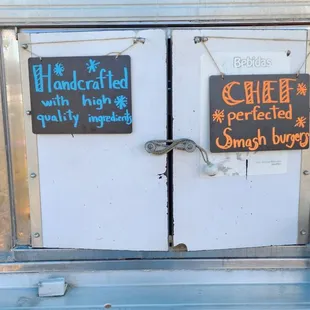 Handcrafted
with high
quality ingredients
Bebidas
CHEF
perfected
Smash burgers